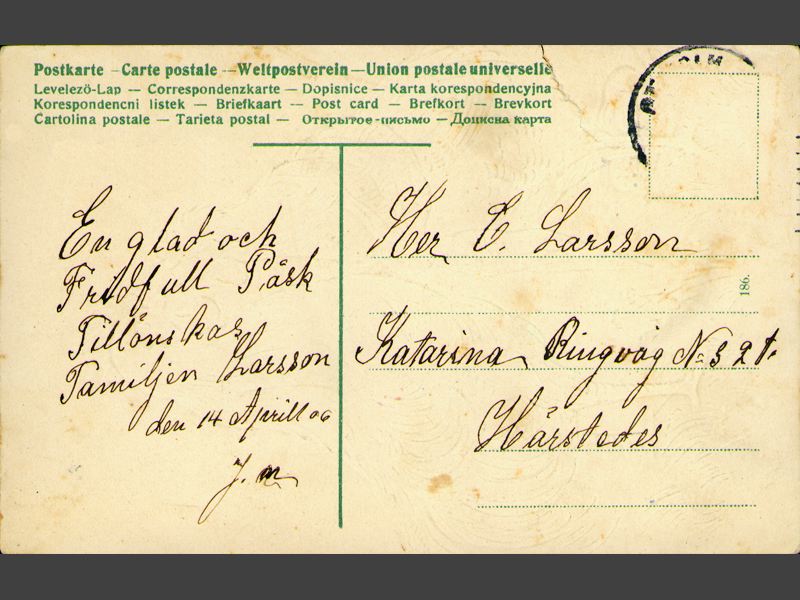 Postkarte – Carte postale – Weltpostverein – Union postale universelle
Levelező-Lap – Correspondenzkarte – Dopisnice – Karta korespondencyjna
Korespondencni listek – Briefkaart – Post card – Brefkort – Brevkort
Cartolina postale – Tarieta postal – Открытое-письмо – Дописна карта
En glad och
Fridfull Påsk
Tillönskas
Familjen Larsson
den 14 Aprill 06
J. M
Her C. Larsson
Katarina Ringväg No 3 2 t.
Härstedes
186.